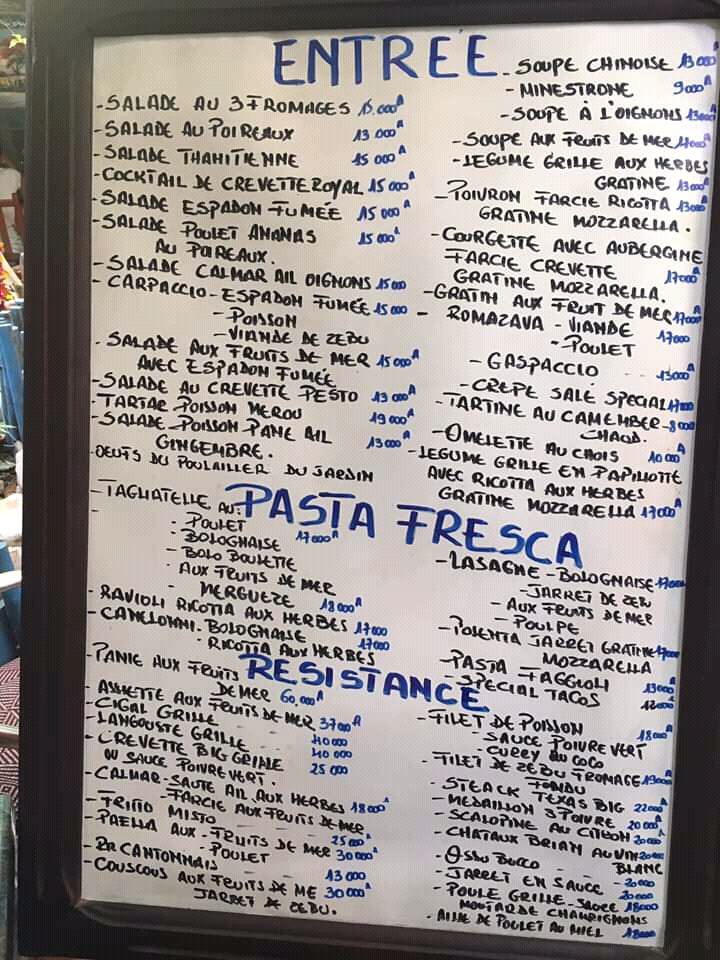 ENTREÉ
- SALADE AU 3 FROMAGES 15.000A
- SALADE AU POIREAUX 13 000A
- SALADE THAHITIENNE 15 000A
- COCKTAIL DE CREVETTE ROYAL 15 000A
- SALADE ESPADON FUMÉE 15 000A
- SALADE POULET ANANAS 15 000A
AU POIREAUX.
- SALADE CALMAR AIL OIGNONS 15 000
- CARPACCIO - ESPADON FUMÉE 15 000
- POISSON
- VIANDE DE ZEBU
- SALADE AUX FRUITS DE MER 15 000A
AVEC ESPADON FUMÉE
- SALADE AU CREVETTE PESTO 13 000A
- TARTAR POISSON MEROU 19 000A
- SALADE POISSON PANE AIL 13 000A
GINGEMBRE.
- OEUFS DU POULAILLER DU JARDIN
- SOUPE CHINOISE 13 000A
- MINESTRONE 9000A
- SOUPE À L'OIGNONS 13000A
- SOUPE AUX FRUITS DE MER 17000A
- LEGUME GRILLE AUX HERBES
GRATINE 13000A
- POIVRON FARCIE RICOTTA 13000A
GRATINE MOZZARELLA.
- COURGETTE AVEC AUBERGINE
FARCIE CREVETTE 17000A
GRATINE MOZZARELLA.
- GRATIN AUX FRUIT DE MER 17000A
- ROMAZAVA - VIANDE 17000
- POULET
- GASPACCIO 13000A
- CREPE SALE SPECIAL 17000
- TARTINE AU CAMEMBER 8000A
CHAUD.
- OMELETTE AU CHOIS 10 000A
- LEGUME GRILLE EN PAPILLOTTE
AVEC RICOTTA AUX HERBES
GRATINE MOZZARELLA 17000A
PASTA FRESCA
- TAGLIATELLE AU: 17000A
- POULET
- BOLOGNAISE
- BOLO BOULETTE
- AUX FRUITS DE MER
- MERGUEZE 18000A
- RAVIOLI RICOTTA AUX HERBES 17000
- CANELONNI - BOLOGNAISE 17000
- RICOTTA AUX HERBES
- LASAGNE - BOLOGNAISE 17000
- JARRET DE ZEBU
- AUX FRUITS DE MER
- POULPE
- POLENTA JARRET GRATINE 17000
MOZZARELLA
- PASTA FAGGIOLI 13000A
- SPECIAL TACOS 12000A
RESISTANCE
- PANIE AUX FRUITS
DE MER 60,000A
- ASSIETTE AUX FRUITS DE MER 37000A
- CIGAL GRILLE 40 000
- LANGOUSTE GRILLE 40 000
- CREVETTE BIG GRILLE 25 000
OU SAUCE POIVRE VERT.
- CALMAR - SAUTE AIL AUX HERBES 18000A
- FARCIE AUX FRUITS DE MER
- FRITTO MISTO 25000A
- PAELLA AUX - FRUITS DE MER 30000A
- POULET
- RR CANTONNAIS 13 000
- COUSCOUS AUX FRUITS DE ME 30000A
JARRET DE ZEBU.
- FILET DE POISSON 18000A
- SAUCE POIVRE VERT
- CURRY AU COCO
- FILET DE ZEBU FROMAGE 19000A
FONDU
- STEACK TEXAS BIG 22000A
- MEDAILLON 3 POIVRE 20000A
- SCALOPINE AU CITRON 20000A
- CHATAUX BRIAN AU VIN 20000
BLANC
- OSSU BUCCO 20000
- JARRET EN SAUCE 20000
- POULE GRILLE - SAUCE 18000
MOUTARDE CHAMPIGNONS
- AILLE DE POULET AU MIEL 18000